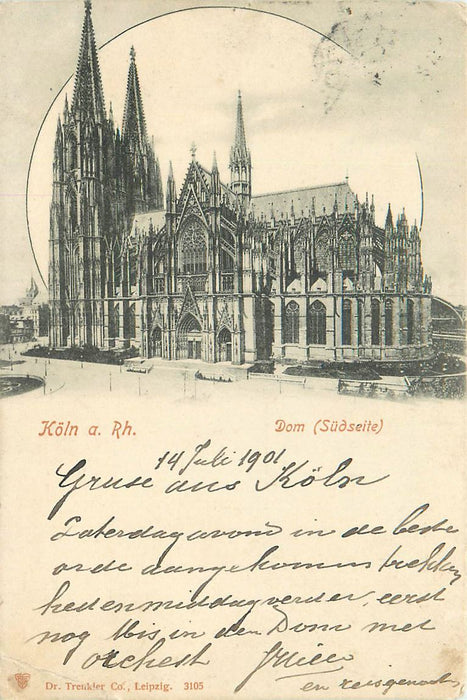 Köln a. Rh.
Dom (Südseite)
14 Juli 1901
Gruse aus Köln
Zaterdagavond in de beste
orde aangekomen trekken
hedenmiddag verder, eerst
nog Mis in den Dom met
orchest
en reisgenooten
Dr. Trenkler Co., Leipzig. 3105